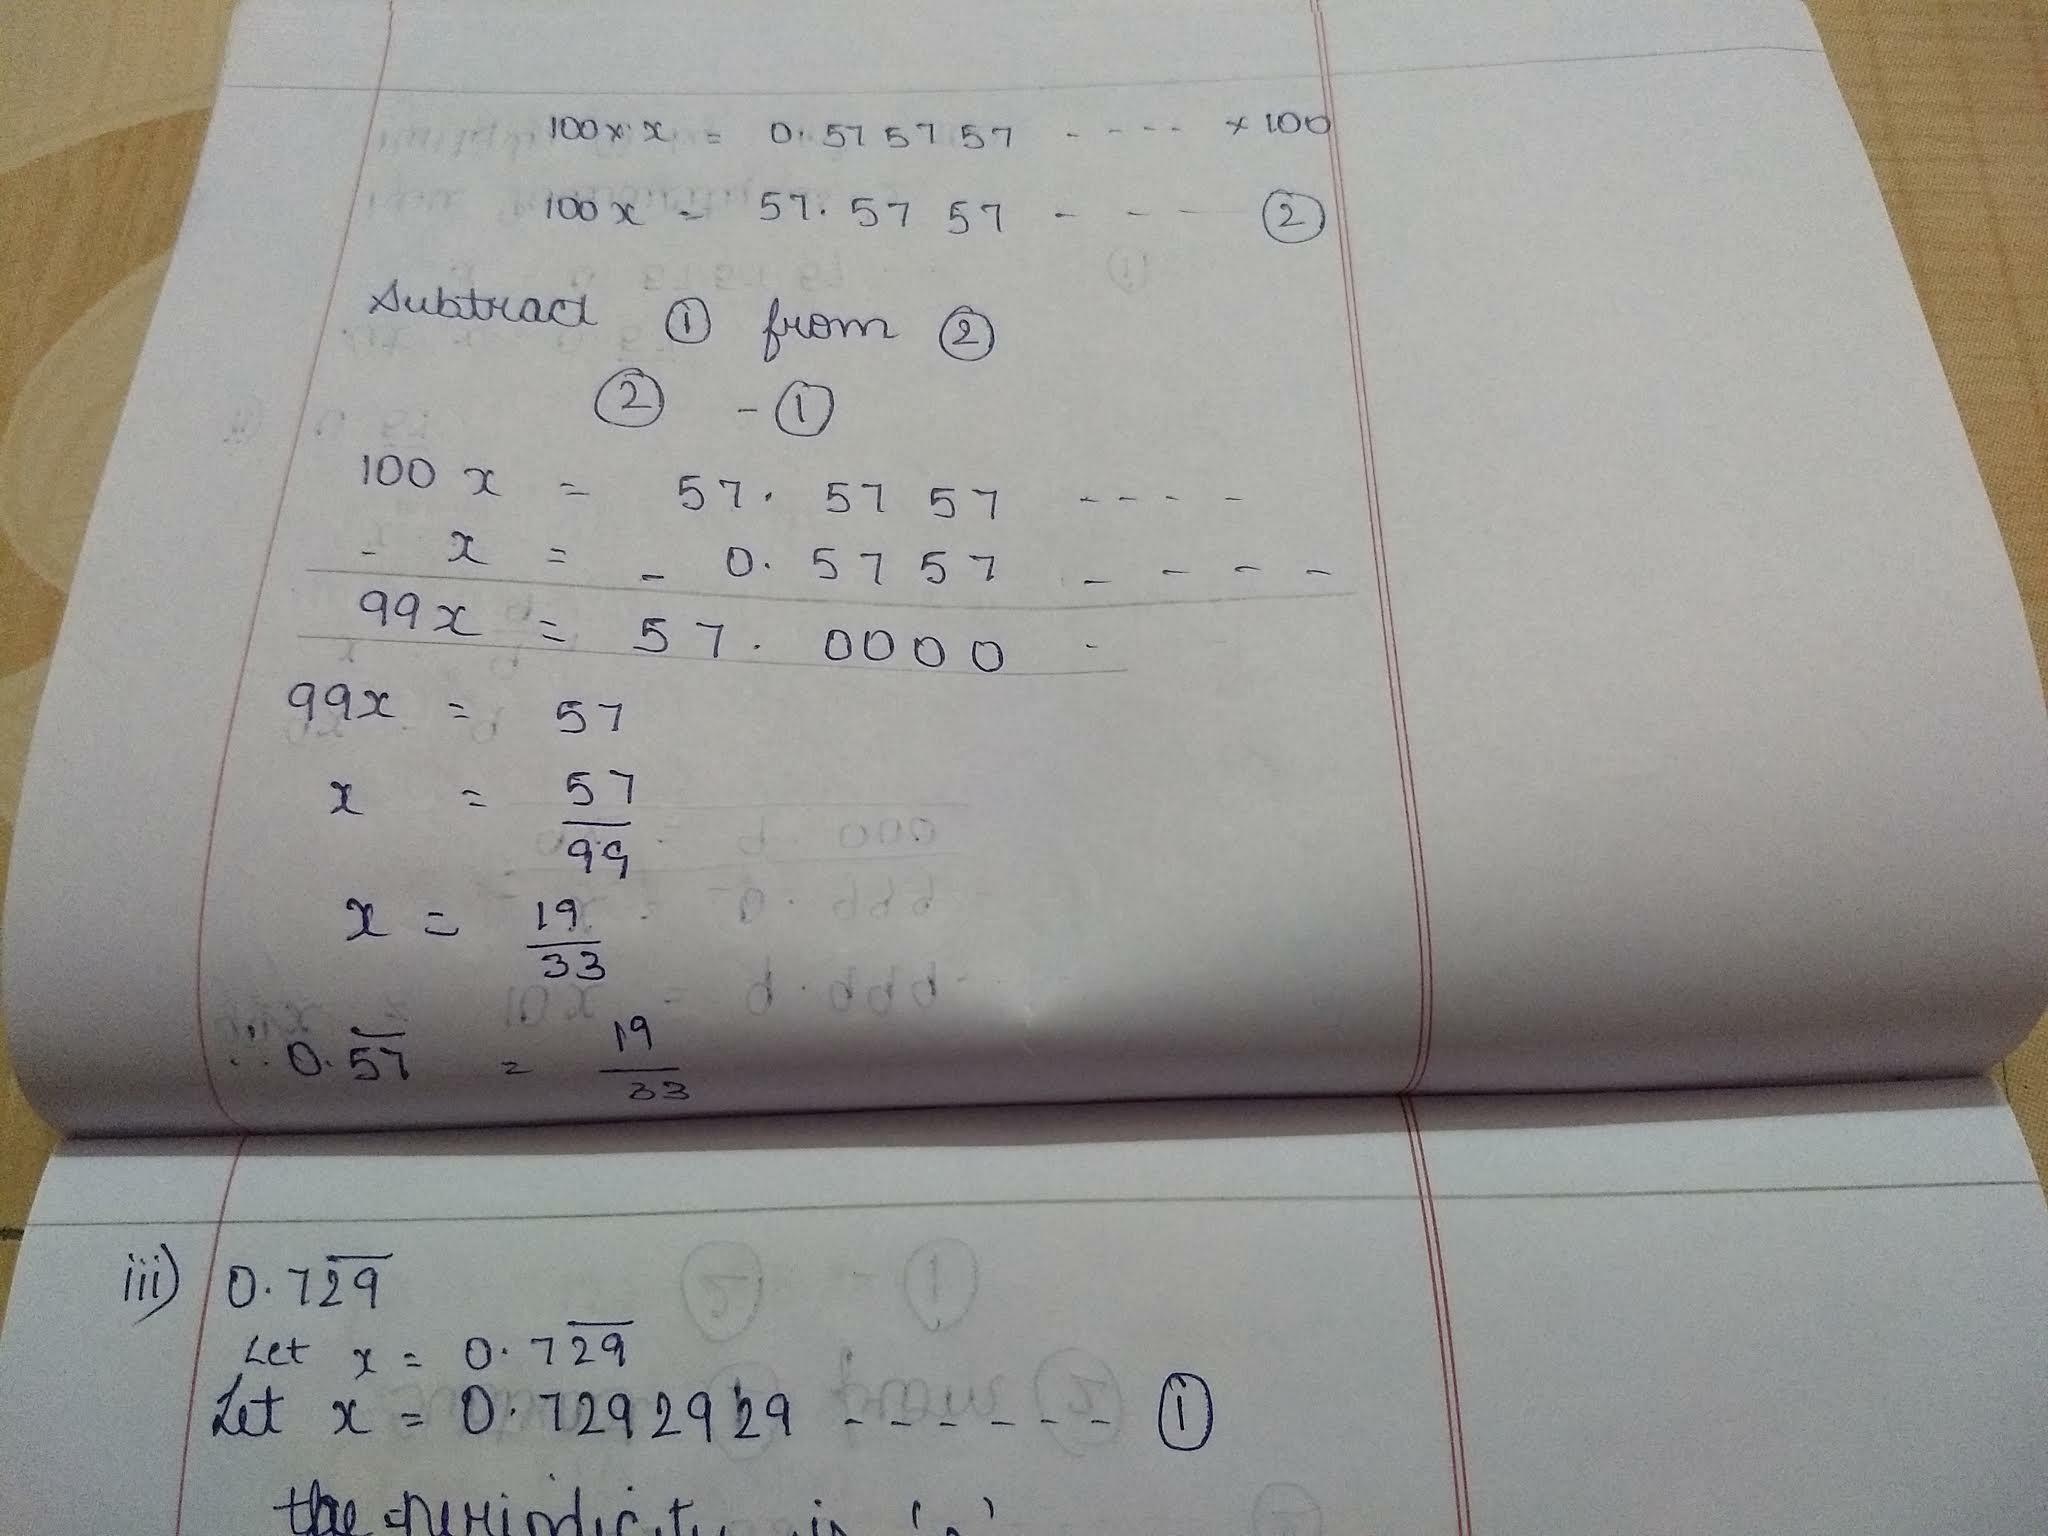 100 × x = 0.575757 ---- × 100
100x = 57.5757 - - - ②
Subtract ① from ②
② - ①
100 x = 57.5757 ----
- x = - 0.5757 - - - -
99x = 57.0000 -
99x = 57
x = 57/99
x = 19/33
∴ 0.5̅7̅ = 19/33
iii) 0.72̅9̅
Let x = 0.72̅9̅
Let x = 0.7292929 ------ ①
the periodicity is